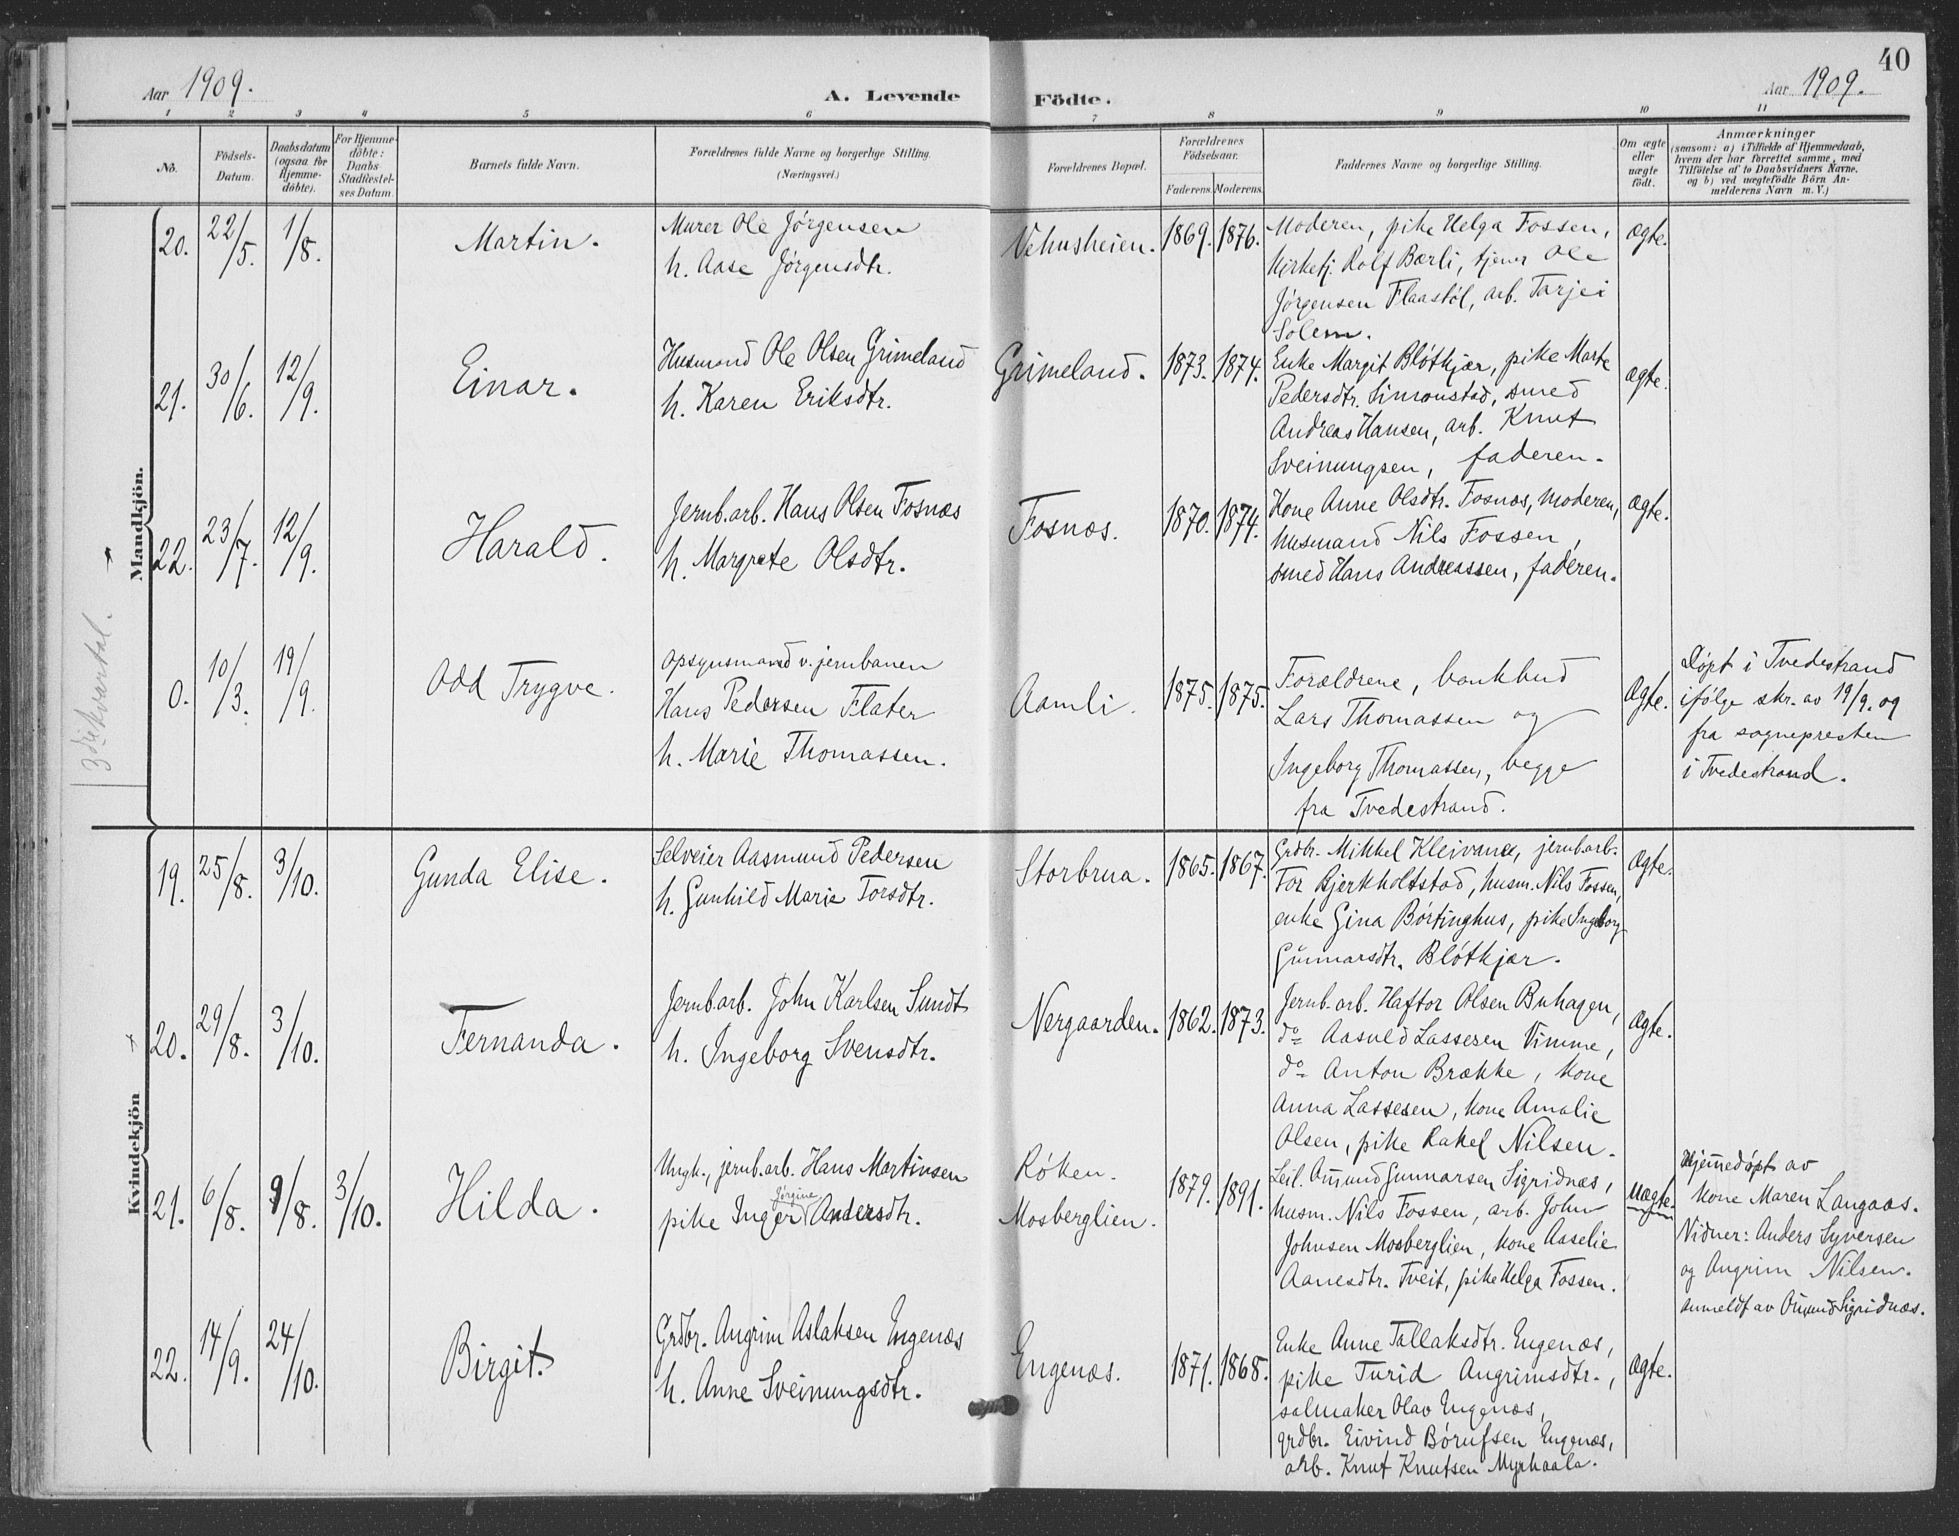 Aar 1909.
A. Levende Födte.
Aar 1909.
40
1 2 3 4 5 6 7 8 9 10 11
No.
Födsels-Datum.
Daabsdatum (ogsaa for Hjemme-döbte).
For Hjemme-döbte: Daabs Stadfæstel-ses Datum.
Barnets fulde Navn.
Forældrenes fulde Navne og borgerlige Stilling. (Næringsvei.)
Forældrenes Bopæl.
Forældrenes Födselsaar.
Faderens. Moderens.
Faddernes Navne og borgerlige Stilling.
Om ægte eller uægte födt.
Anmærkninger
(saasom: a) i Tilfælde af Hjemmedaab,
hvem der har forrettet samme, med
Tilföielse af to Daabsvidners Navne.
og b) ved uægtefödte Börn An-
melderens Navn m. V.)
Mandkjön.
3die kvartal.
20. 22/5. 1/8. Martin.
Murer Ole Jørgensen
h. Aase Jørgensdtr.
Vehusheien. 1869. 1876.
Moderen, pike Helga Fossen,
kirketj. Rolf Bærli, tjener Ole
Jørgensen Flaastøl, arb. Tarjei
Solem.
Ægte.
21. 30/6. 12/9. Einar.
Husmand Ole Olsen Grimeland
h. Karen Eriksdtr.
Grimeland. 1873. 1874.
Enke Margit Bløtkjær, pike Marte
Pedersdtr. Simonstad, smed
Andreas Hansen, arb. Knut
Sveinungsen, faderen.
Ægte.
22. 23/7. 12/9. Harald.
Jernb.arb. Hans Olsen Fosnæs
h. Margrete Olsdtr.
Fosnæs. 1870. 1874.
Kone Anne Olsdtr. Fosnæs, moderen,
husmand Nils Fossen,
smed Hans Andreassen, faderen.
Ægte.
0. 10/3. 19/9. Odd Trygve.
Opsynsmand v. jernbanen
Hans Pedersen Flater
h. Marie Thomassen.
Aamli. 1875. 1875.
Forældrene, bankbud
Lars Thomassen og
Ingeborg Thomassen, begge
fra Tvedestrand.
Ægte.
Døpt i Tvedestrand
ifølge skr. av 19/9. og
fra sognepresten
i Tvedestrand.
Kvindekjön
19. 25/8. 3/10. Gunda Elise.
Selveier Aasmund Pedersen
h. Gunhild Marie Torsdtr.
Storbrua. 1865. 1867.
Grdbr. Mikkel Kleivane, jernb.arb.
Tor Bjerkholtstad, husm. Nils Fossen,
enke Gina Børtinghus, pike Ingeborg
Gunnarsdtr. Bløtkjær.
Ægte.
20. 29/8. 3/10. Fernanda.
Jernb.arb. John Karlsen Sundt
h. Ingeborg Svensdtr.
Nergaarden. 1862. 1873.
Jernb.arb. Haftor Olsen Buhagen,
do Aasveld Lassesen Vimme,
do Anton Brække, kone
Anna Lassesen, kone Amalie
Olsen, pike Rakel Nilsen.
Ægte.
21. 6/8. 9/8. 3/10. Hilda.
Ungk., jernb.arb. Hans Martinsen
pike Inger Jørgine Andersdtr.
Røken.
Mosberglien. 1879. 1891.
Leil. Omund Gunnarsen Sigridnæs,
husm. Nils Fossen, arb. John
Johnsen Mosberglien, kone Aaselie
Aanesdtr. Tveit, pike Helga Fossen.
Uægte.
Hjemmedøpt av
kone Maren Langaas.
Vidner: Anders Syversen
og Angrim Nilsen.
anmeldt av Omund Sigridnæs.
22. 14/9. 24/10. Birgit.
Grdbr. Angrim Aslaksen Engenæs
h. Anne Sveinungsdtr.
Engenæs. 1871. 1868.
Enke Anne Tallaksdtr. Engenæs,
pike Turid Angrimsdtr.,
salmaker Olav Engenæs,
grdbr. Eivind Børufsen Engenæs,
arb. Knut Knutsen Myrhaala.
Ægte.